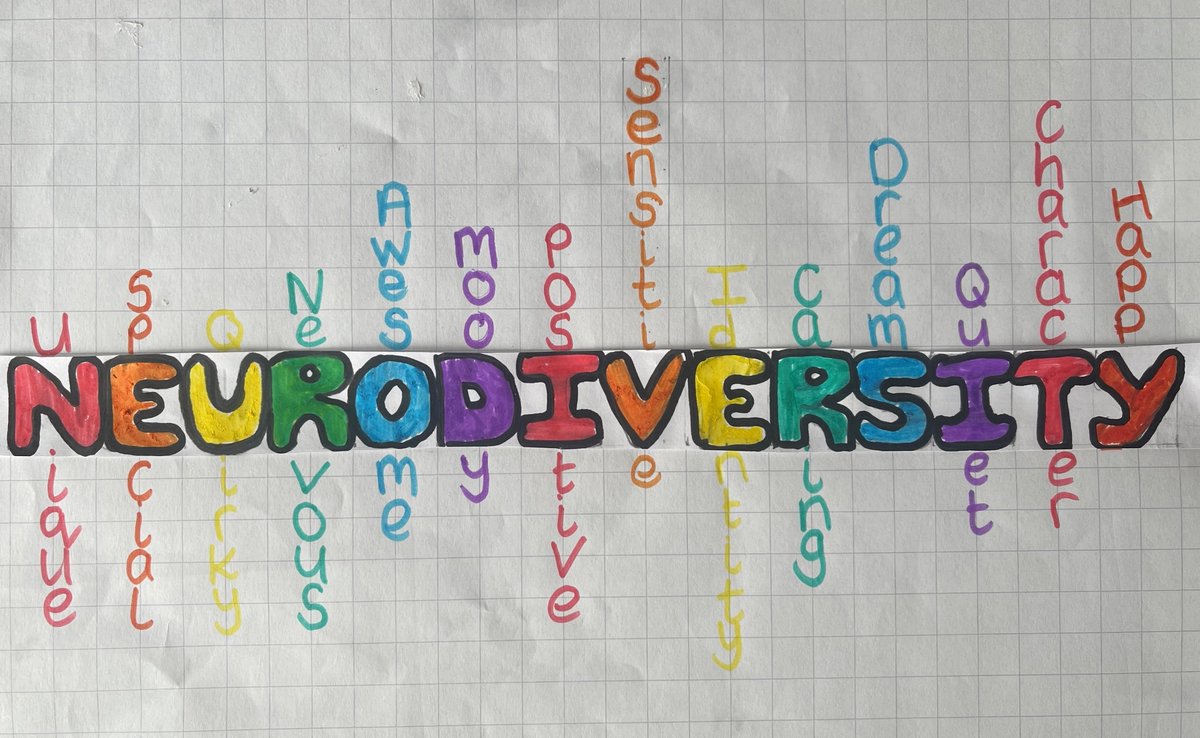 NEURODIVERSITY
UNique
SpEcial
QUirky
NeRvous
AwesOme
mooDy
posItive
sensitiVe
IdEntity
CaRing
DreamS
QuIet
CharacTer
HappY